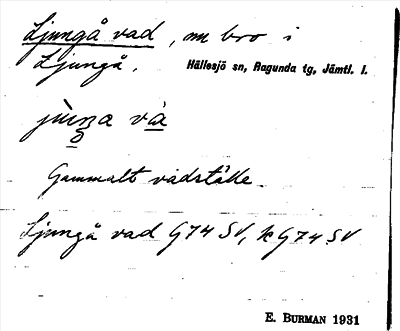 Ljungå vad, nu bro i
Ljungå. Hällesjö sn, Ragunda tg, Jämtl. l.
jùŋa và
Gammalt vadställe.
Ljungå vad G74 SV, k G74 SV
E. BURMAN 1931